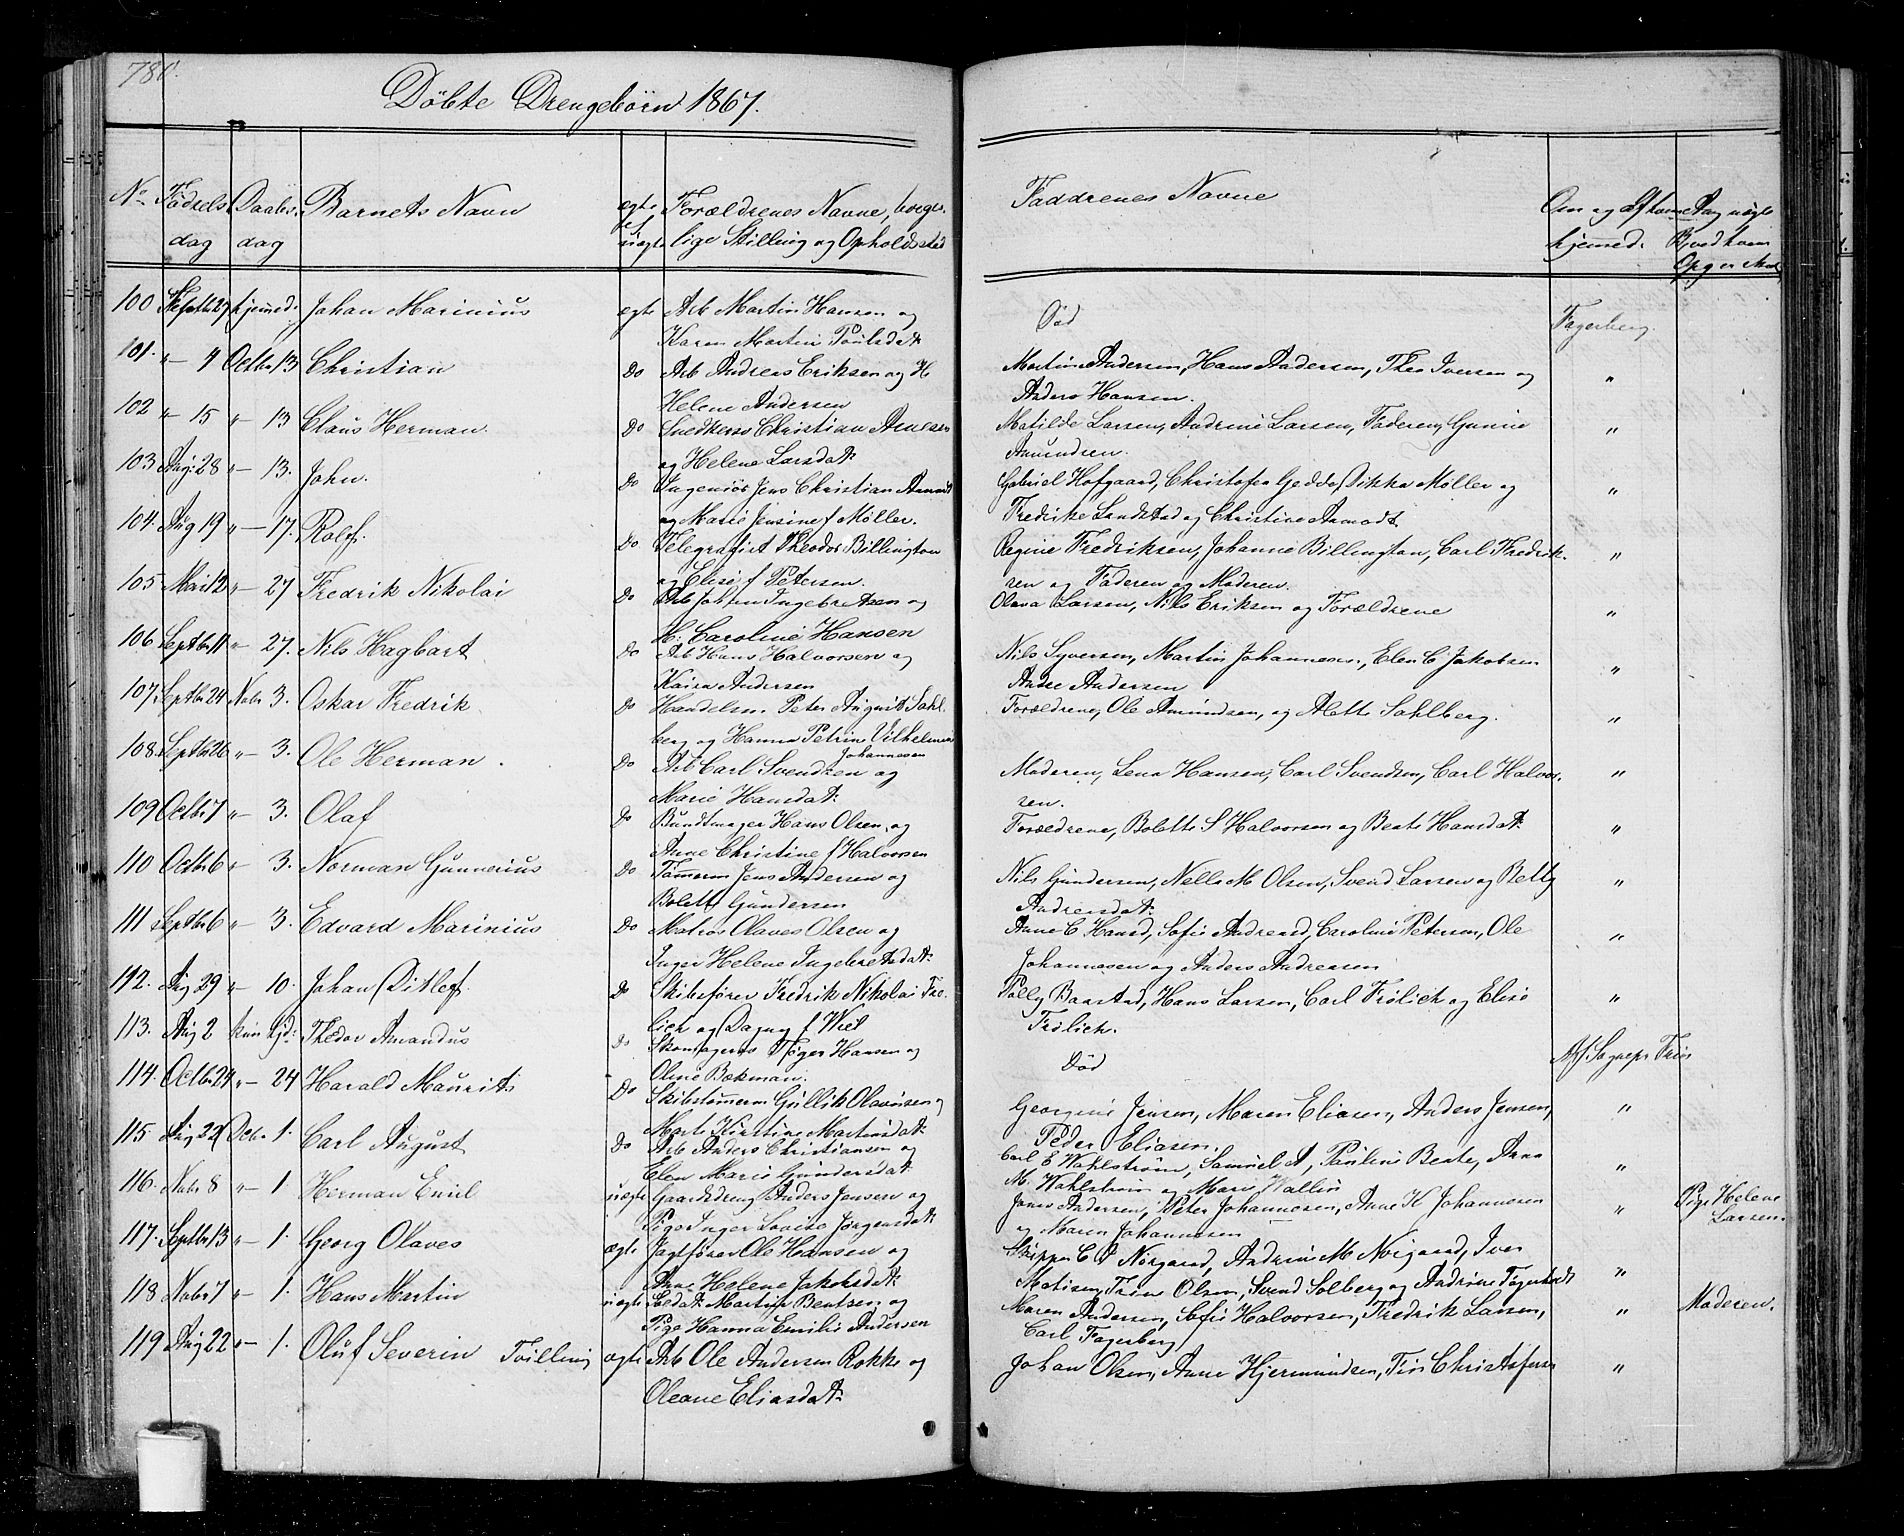 780.
Döbte Drengebörn 1867.
No Födsels Daabs Barnets Navn egte Forældrenes Navne, borger
dag dag el uægte lige Stilling og Opholdssted
100 Septbr 27 hjemmed. Johan Marinius egte Arb Martin Hansen og
Karen Martin Poulsdat
101. " 4 Octbr 13 Christian Do Arb Andreas Eriksen og H
Helene Andersen
102 " 15 " 13 Claus Herman. Do Snedkersv Christian Arnesen
og Helene Larsdat.
103 Aug: 28 " 13. John. Do Ingeniör Jens Christian Aamodt
og Marie Jensine f Möller.
104. Aug 19 " 17. Rolf. Do Telegrafist Theodor Billington
og Elise f Petersen.
105 Mai 12 " 27 Fredrik Nikolai Do Arb Johan Ingebretsen og
H: Caroline Hansen
106 Septbr 11 " 27. Nils Hagbart Do Arb Hans Halvorsen og
Kaisa Andersen
107. Septbr 24 Nobr 3. Oskar Fredrik. Do Handelsm. Peter August Sahl
berg og Hanna Petrine Vilhelmine
Johannesen
108. Septbr 26 " 3. Ole Herman. Do Arb Carl Svendsen og
Marie Hansdat.
109 Octbr 7 " 3. Olaf Do Bundtmager Hans Olsen, og
Anne Christine f Halvorsen
110 Octbr 6 " 3. Norman Gunnerius Do Tömmerm Jens Andersen og
Bolette Gundersen
111 Septbr 6 " 3. Edvard Marinius Do Matros Olaves Olsen og
Inger Helene Ingebretsdat.
112. Aug 29 " 10. Johan Ditlef. Do Skibsförer Fredrik Nikolai Frö
lich og Dagny f Wiel
113. Aug 2 kun hjd: Thedor Amandus Do Skomagersv Töger Hansen og
Oline Bækman.
114. Octbr 24 " 24 Harald Maurits Do Skibstömmerm Gullik Olavesen og
Marte Kirstine Martinsdat.
115 Aug 22 Decbr 1. Carl August Do Arb Anders Christiansen og
Elen Marie Gundersdat.
116. Nobr 8 " 1 Herman Emil uægte Gaardsdreng Anders Jensen og
Pige Inger Lovise Jörgensdat.
117. Septbr 13 " 1. Georg Olaves ægte Jagtförer Ole Hansen og
Anne Helene Jakobsdat.
118 Nobr 7 " 1. Hans Martin uegte Soldat Martin Bentsen og
Pige Hanna Emilie Andersen
119 Aug 22 " 1. Oluf Severin Tvilling ægte Arb Ole Andersen Rokke og
Oleane Eliasdat.
Faddrenes Navne Om og af hvem Dag uægte
hjemmed. B, ved hvem
Opg er sked
Död Fagerberg.
Martin Andersen, Hans Andersen, Theo Iversen og "
Anders Hansen.
Matilde Larsen, Andrine Larsen, Faderen, Gunne "
Amundsen.
Gabriel Hofgaard, Christofer Gedde, Rikka Möller og "
Fredrike Sandstad og Christine Aamodt
Regine Fredriksen, Johanne Billington, Carl Fredrik- "
sen og Faderen og Moderen.
Olava Larsen, Nils Eriksen og Forældrene "
Nils Syversen, Martin Johannesen, Elen C Jakobsen "
Andre Andersen
Forældrene, Ole Amundsen, og Alette Sahlberg. "
Moderen, Lena Hansen, Carl Svendsen, Carl Halvor- "
sen.
Forældrene, Bolette S Halvorsen og Beate Hansdat. "
Nils Gundersen, Nelle M Olsen, Svend Larsen og Betty "
Andreasdat.
Anne C Hansd, Sofie Andreasd, Caroline Petersen, Ole "
Johannesen og Anders Andreasen
Polly Baarstad, Hans Larsen, Carl Frölich og Elise "
Frölich.
Död Af Sognepr Friis
Georgine Jensen, Maren Eliasen, Anders Jensen, "
Peder Eliasen.
Carl E Wahlström, Samuel A, Pauline Beate, Anna "
M. Wahlström og Mari Wallin
Jens Andersen, Peter Johannesen, Anne H Johannesen " Pige Helene
og Maren Johannesen Larsen.
Skipper C P Norgaard, Andrine M Norgaard, Iver "
Matisen, Trine Olsen, Svend Solberg og Andrine Fagerstedt
Maren Andersen, Sofie Halvorsen, Fredrik Larsen, " Moderen.
Carl Fagerberg
Johan Olsen, Anne Hjermundsen, Trin Christofersen "